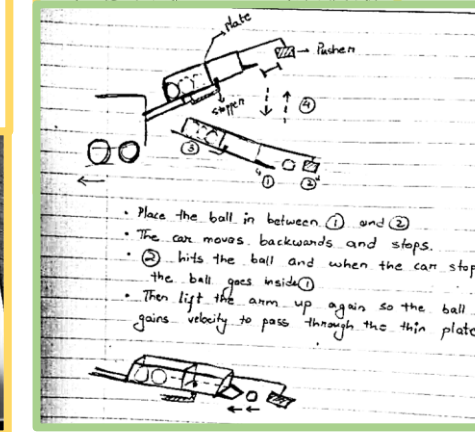 Plate
→ Pusher
stopper
④
③
① ②
• Place the ball in between ① and ②
• The car moves backwards and stops.
• ② hits the ball and when the car stop
the ball goes inside ①
• Then lift the arm up again so the ball
gains velocity to pass through the thin plate